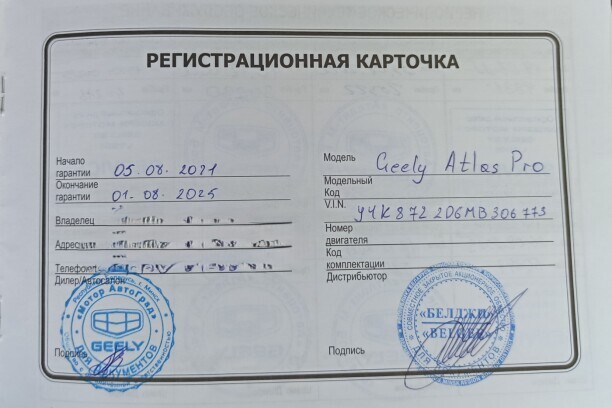 РЕГИСТРАЦИОННАЯ КАРТОЧКА
Начало гарантии 05.08.2021
Окончание гарантии 01.08.2025
Владелец
Адрес
Телефон
Дилер/Автосалон
«Мотор АвтоГрад»
GEELY
ДЛЯ ДОКУМЕНТОВ
Подпись
Модель Geely Atlas Pro
Модельный Код
V.I.N. Y4K8722D6MB306773
Номер двигателя
Код комплектации
Дистрибьютор
СОВМЕСТНОЕ ЗАКРЫТОЕ АКЦИОНЕРНОЕ ОБЩЕСТВО
«БЕЛДЖИ»
«BELGEE»
ДЛЯ ДОКУМЕНТОВ
Подпись